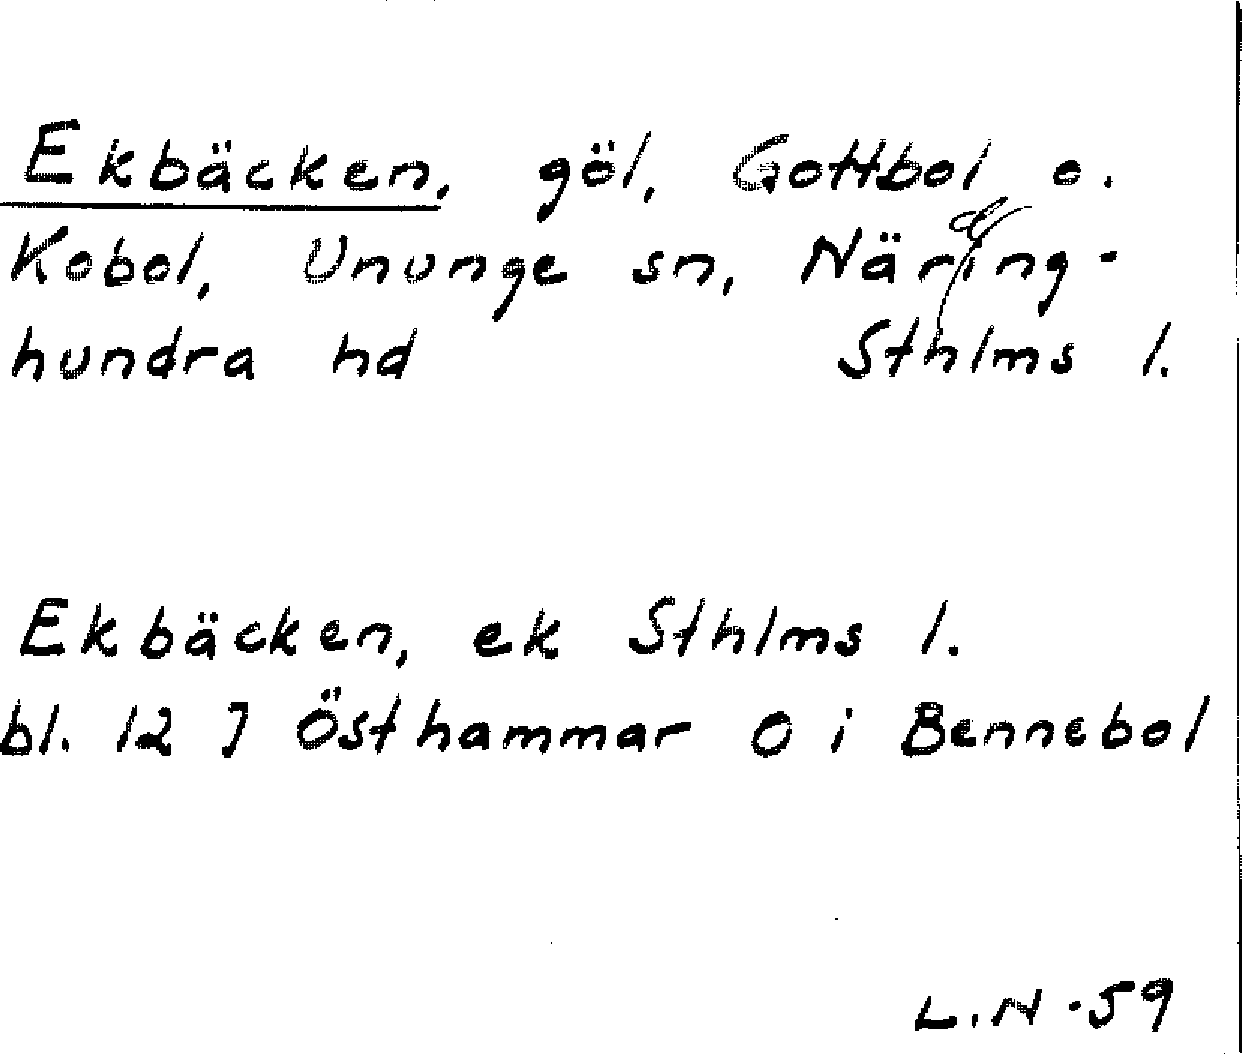 Ekbäcken, göl, Gottbol o.
Kobol, Ununge sn, Näring-
hundra hd Sthlms l.
Ekbäcken, ek Sthlms l.
bl. 12 J Östhammar O i Bennebol
L.N -59